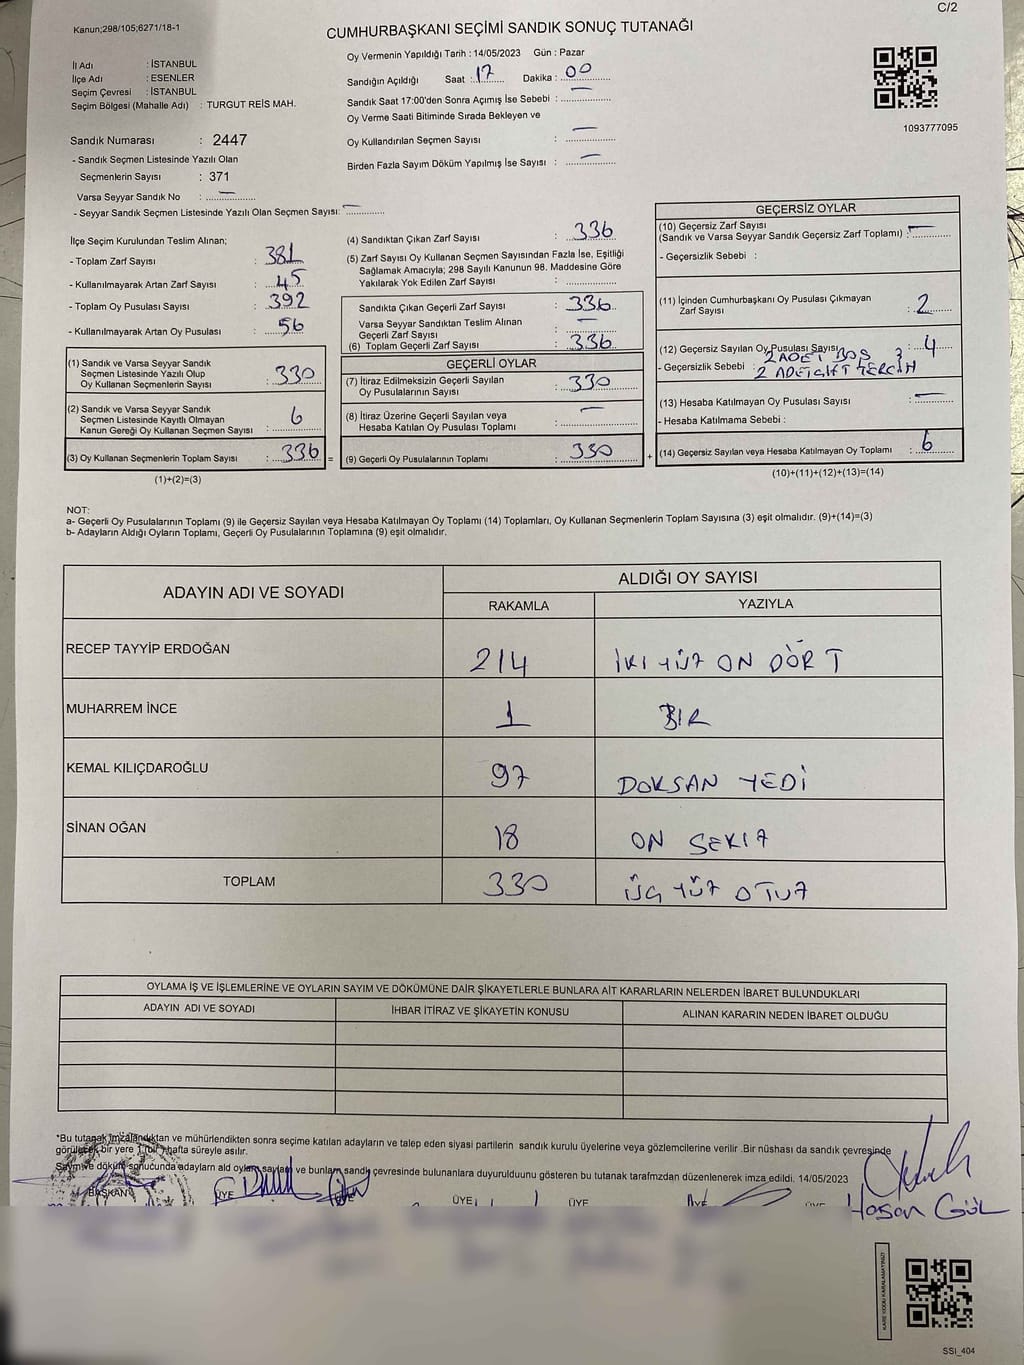 C/2
Kanun;298/105;6271/18-1
CUMHURBAŞKANI SEÇİMİ SANDIK SONUÇ TUTANAĞI
İl Adı : İSTANBUL
İlçe Adı : ESENLER
Seçim Çevresi : İSTANBUL
Seçim Bölgesi (Mahalle Adı) : TURGUT REİS MAH.
Oy Vermenin Yapıldığı Tarih : 14/05/2023 Gün : Pazar
Sandığın Açıldığı Saat : 17 Dakika : 00
Sandık Saat 17:00'den Sonra Açımış İse Sebebi : —
Oy Verme Saati Bitiminde Sırada Bekleyen ve
Oy Kullandırılan Seçmen Sayısı : —
Birden Fazla Sayım Döküm Yapılmış İse Sayısı : —
1093777095
Sandık Numarası : 2447
- Sandık Seçmen Listesinde Yazılı Olan
Seçmenlerin Sayısı : 371
Varsa Seyyar Sandık No : —
- Seyyar Sandık Seçmen Listesinde Yazılı Olan Seçmen Sayısı: —
İlçe Seçim Kurulundan Teslim Alınan;
- Toplam Zarf Sayısı : 381
- Kullanılmayarak Artan Zarf Sayısı : 45
- Toplam Oy Pusulası Sayısı : 392
- Kullanılmayarak Artan Oy Pusulası : 56
(1) Sandık ve Varsa Seyyar Sandık
Seçmen Listesinde Yazılı Olup
Oy Kullanan Seçmenlerin Sayısı : 330
(2) Sandık ve Varsa Seyyar Sandık
Seçmen Listesinde Kayıtlı Olmayan
Kanun Gereği Oy Kullanan Seçmen Sayısı : 6
(3) Oy Kullanan Seçmenlerin Toplam Sayısı : 336 =
(1)+(2)=(3)
(4) Sandıktan Çıkan Zarf Sayısı : 336
(5) Zarf Sayısı Oy Kullanan Seçmen Sayısından Fazla İse, Eşitliği
Sağlamak Amacıyla; 298 Sayılı Kanunun 98. Maddesine Göre
Yakılarak Yok Edilen Zarf Sayısı :
Sandıkta Çıkan Geçerli Zarf Sayısı : 336
Varsa Seyyar Sandıktan Teslim Alınan
Geçerli Zarf Sayısı : —
(6) Toplam Geçerli Zarf Sayısı : 336
GEÇERLİ OYLAR
(7) İtiraz Edilmeksizin Geçerli Sayılan
Oy Pusulalarının Sayısı : 330
(8) İtiraz Üzerine Geçerli Sayılan veya
Hesaba Katılan Oy Pusulası Toplamı : —
(9) Geçerli Oy Pusulalarının Toplamı : 330 +
GEÇERSİZ OYLAR
(10) Geçersiz Zarf Sayısı
(Sandık ve Varsa Seyyar Sandık Geçersiz Zarf Toplamı) : —
- Geçersizlik Sebebi :
(11) İçinden Cumhurbaşkanı Oy Pusulası Çıkmayan
Zarf Sayısı : 2
(12) Geçersiz Sayılan Oy Pusulası Sayısı : 4
- Geçersizlik Sebebi : 2 ADET BOŞ
2 ADET ÇİFT TERCİH
(13) Hesaba Katılmayan Oy Pusulası Sayısı : —
- Hesaba Katılmama Sebebi :
(14) Geçersiz Sayılan veya Hesaba Katılmayan Oy Toplamı : 6
(10)+(11)+(12)+(13)=(14)
NOT:
a- Geçerli Oy Pusulalarının Toplamı (9) ile Geçersiz Sayılan veya Hesaba Katılmayan Oy Toplamı (14) Toplamları, Oy Kullanan Seçmenlerin Toplam Sayısına (3) eşit olmalıdır. (9)+(14)=(3)
b- Adayların Aldığı Oyların Toplamı, Geçerli Oy Pusulalarının Toplamına (9) eşit olmalıdır.
ADAYIN ADI VE SOYADI ALDIĞI OY SAYISI
RAKAMLA YAZIYLA
RECEP TAYYİP ERDOĞAN 214 İKİ YÜZ ON DÖRT
MUHARREM İNCE 1 BİR
KEMAL KILIÇDAROĞLU 97 DOKSAN YEDİ
SİNAN OĞAN 18 ON SEKİZ
TOPLAM 330 ÜÇ YÜZ OTUZ
OYLAMA İŞ VE İŞLEMLERİNE VE OYLARIN SAYIM VE DÖKÜMÜNE DAİR ŞİKAYETLERLE BUNLARA AİT KARARLARIN NELERDEN İBARET BULUNDUKLARI
ADAYIN ADI VE SOYADI İHBAR İTİRAZ VE ŞİKAYETİN KONUSU ALINAN KARARIN NEDEN İBARET OLDUĞU
*Bu tutanak imzalandıktan ve mühürlendikten sonra seçime katılan adayların ve talep eden siyasi partilerin sandık kurulu üyelerine veya gözlemcilerine verilir .Bir nüshası da sandık çevresinde
görülecek bir yere 1 (bir) hafta süreyle asılır.
Sayım ve döküm sonucunda adayların aldığı oyların sayıları ve bunların sandık çevresinde bulunanlara duyurulduunu gösteren bu tutanak tarafımızdan düzenlenerek imza edildi. 14/05/2023
BAŞKAN ÜYE ÜYE ÜYE ÜYE ÜYE
Hasan Gül
SSI_404